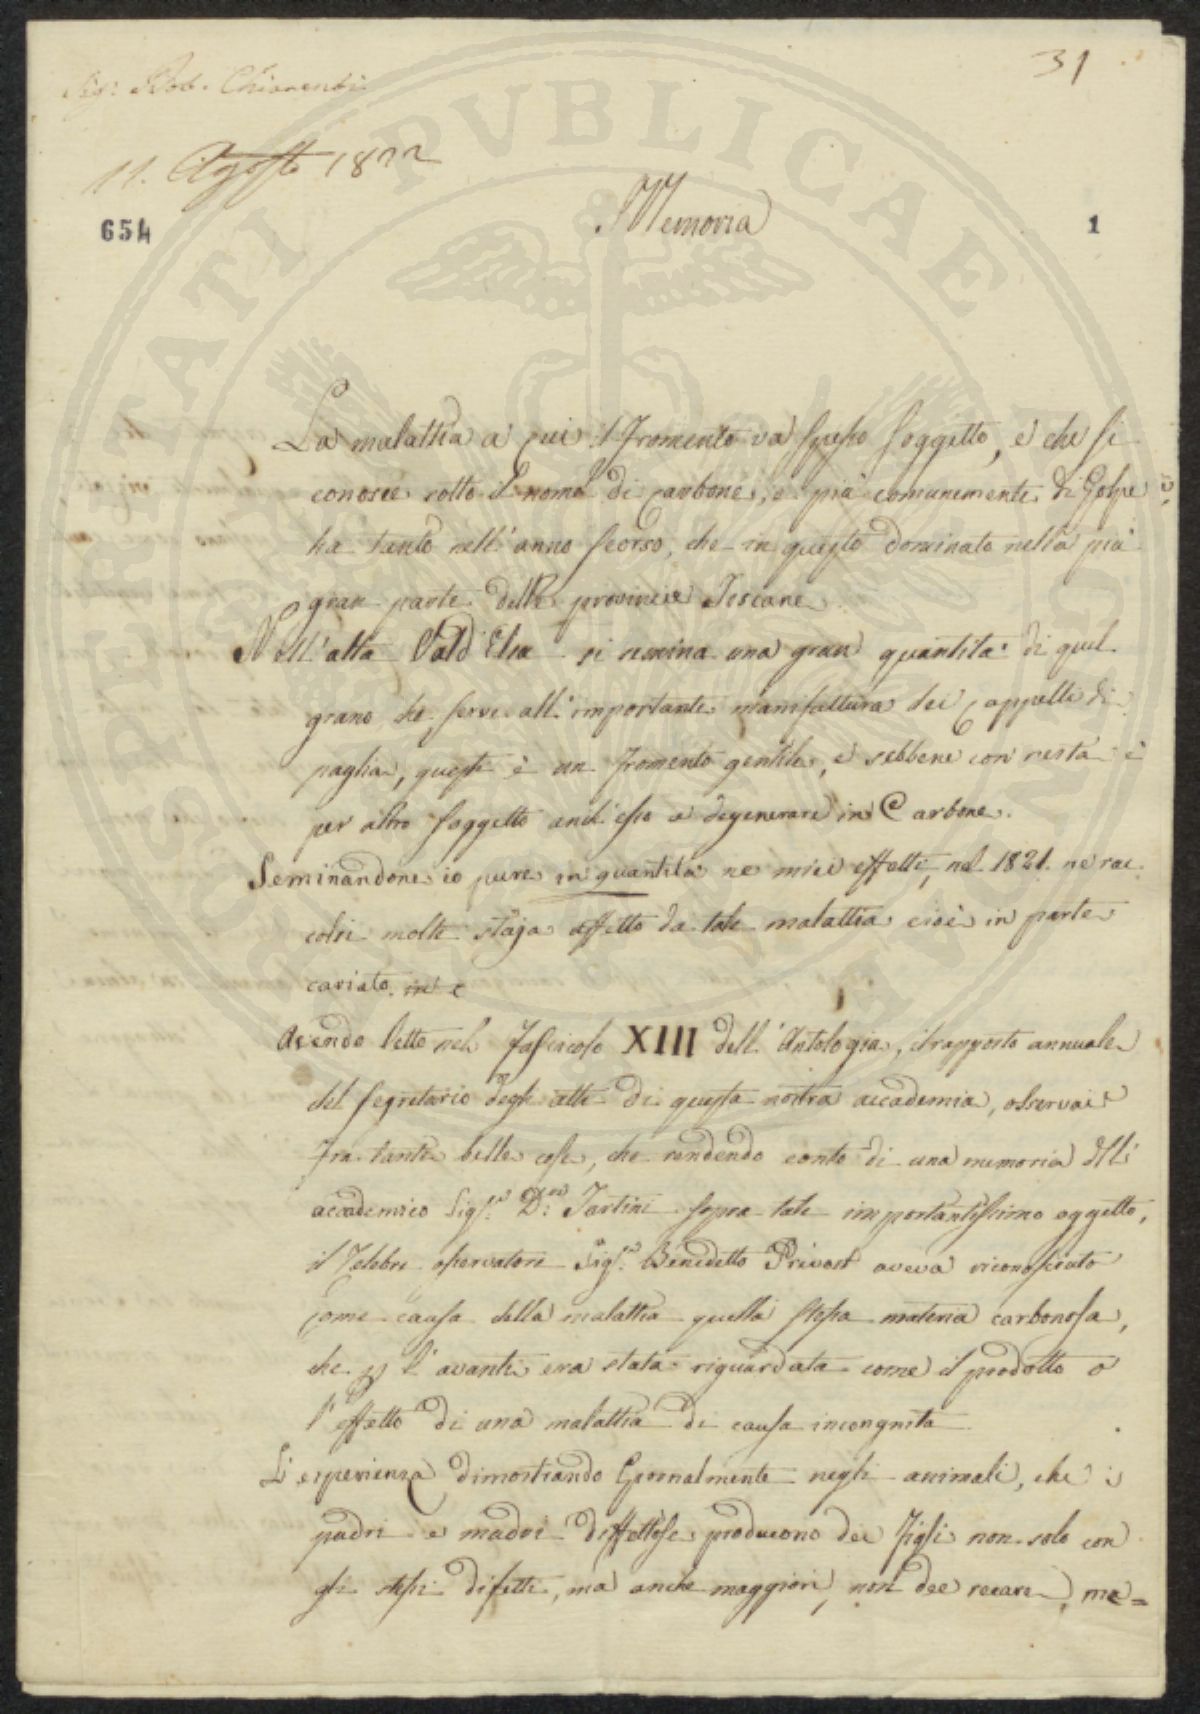 31
Sig: Rob. Chiarenti
11. Agosto 1822
654
Memoria
1
La malattia a cui il Fromento va spesso soggetto, e che si
conosce sotto il nome di Carbone, o più comunemente di Golpe
ha tanto nell'anno scorso, che in questo dominato nella più
gran parte delle provincie Toscane
Nell'alta Vald'Elsa si semina una gran quantità di quel
grano che serve all'importante manifattura dei Cappelli di
paglia, questo è un Fromento gentile, e sebbene con resta è
per altro soggetto anch'esso a degenerare in Carbone.
Seminandone io pure in quantità ne miei effetti, nel 1821. ne rac
colsi molte staja affetto da tale malattia cioè in parte
cariato. in e
Avendo letto nel Fascicolo XIII dell'Antologia, il rapporto annuale
del segretario degli atti di questa nostra accademia, osservai
fra tante belle cose, che rendendo conto di una memoria dell'
accademico Sig.r D.re Tartini sopra tale importantissimo oggetto,
il Celebre osservatore Sig.r Benedetto Privost aveva riconosciuto
come causa della malattia quella stessa materia carbonosa,
che p l'avanti era stata riguardata come il prodotto o
l'effetto di una malattia di causa incongnita
L'esperienza dimostrando Giornalmente negli animali, che i
padri e madri difettose producono dei Figli non solo con
gli stessi difetti, ma anche maggiori, non dee recare ma=